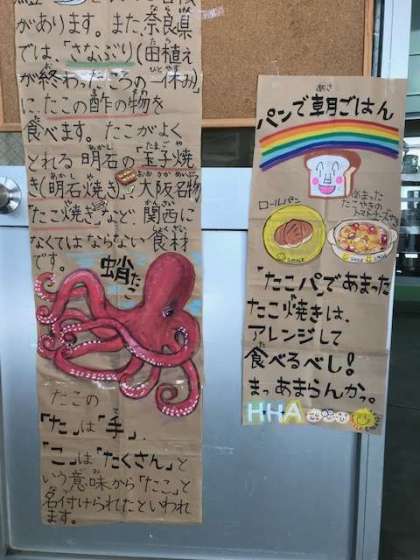 があります。また、奈良県
では、「さなぶり」(田植え
が終わったころの一休み)
に、たこの酢の物を
食べます。たこがよく
とれる明石の「玉子焼
き(明石焼き)」、大阪名物
「たこ焼き」など、関西に
なくてはならない食材
です。
蛸
たこ
たこの
「た」は「手」、
「こ」は「たくさん」と
いう意味から「たこ」と
名付けられたといわれ
ます。
あさ
パンで朝ごはん
ロールパン
あまった
たこやきの
「たこパ」であまった
たこ焼きは、
アレンジして
食べるべし!
まっあまらんかっ。
HHA